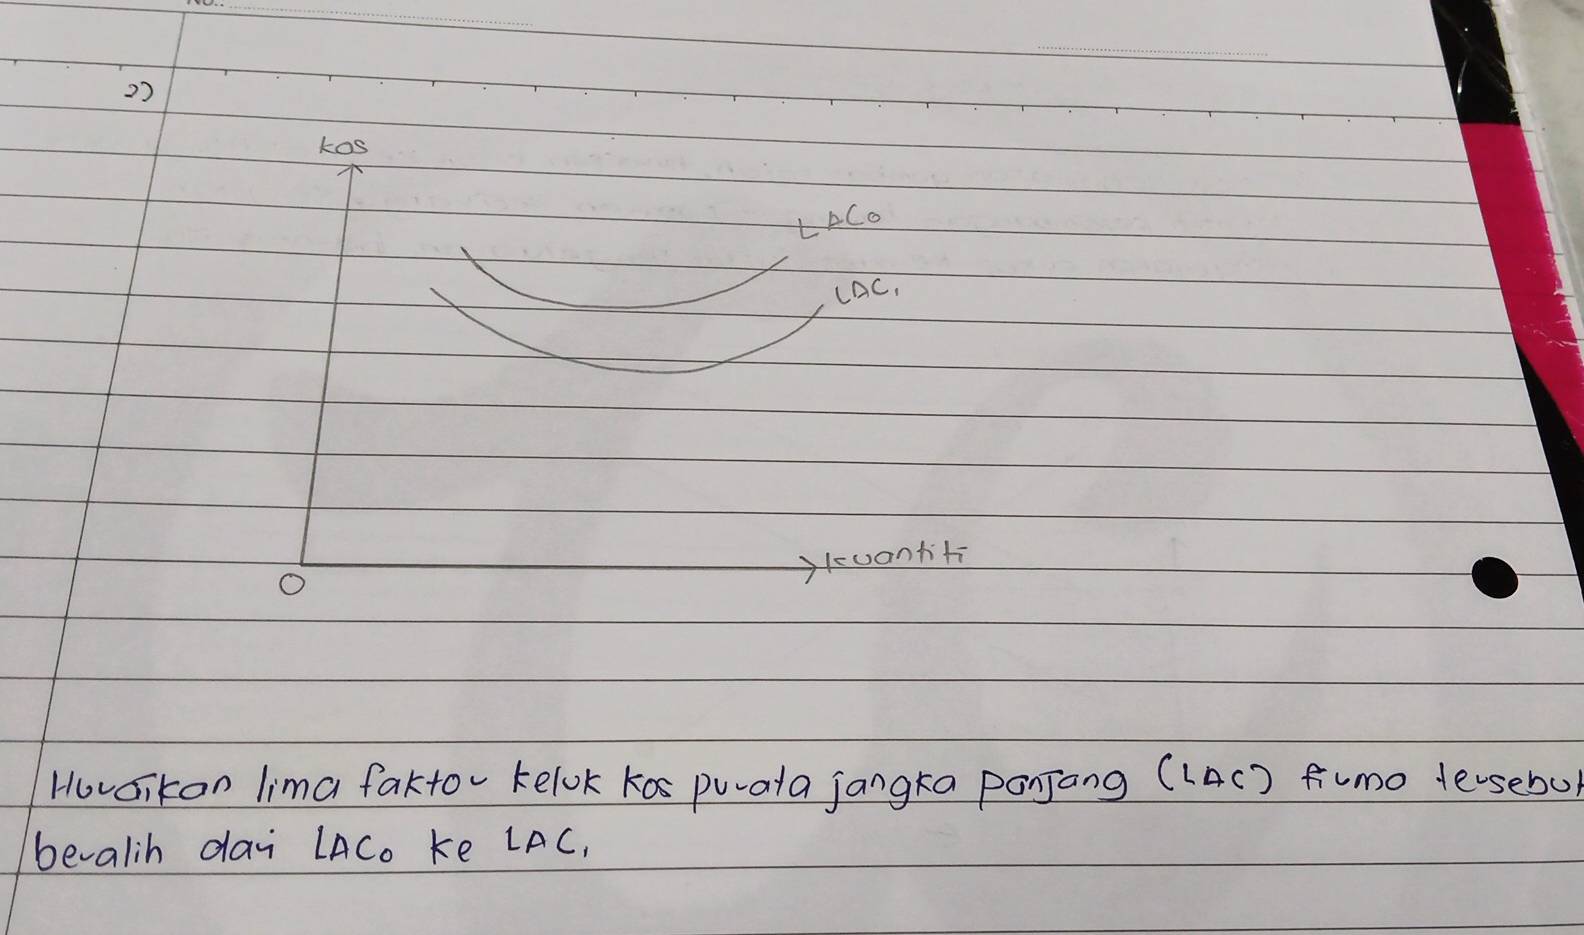 No.:
2)
kos
LAC₀
LAC₁
kuantiti
O
Huraikan lima faktor keluk kos purata jangka panjang (LAC) firma tersebut
beralih dari LAC₀ ke LAC₁